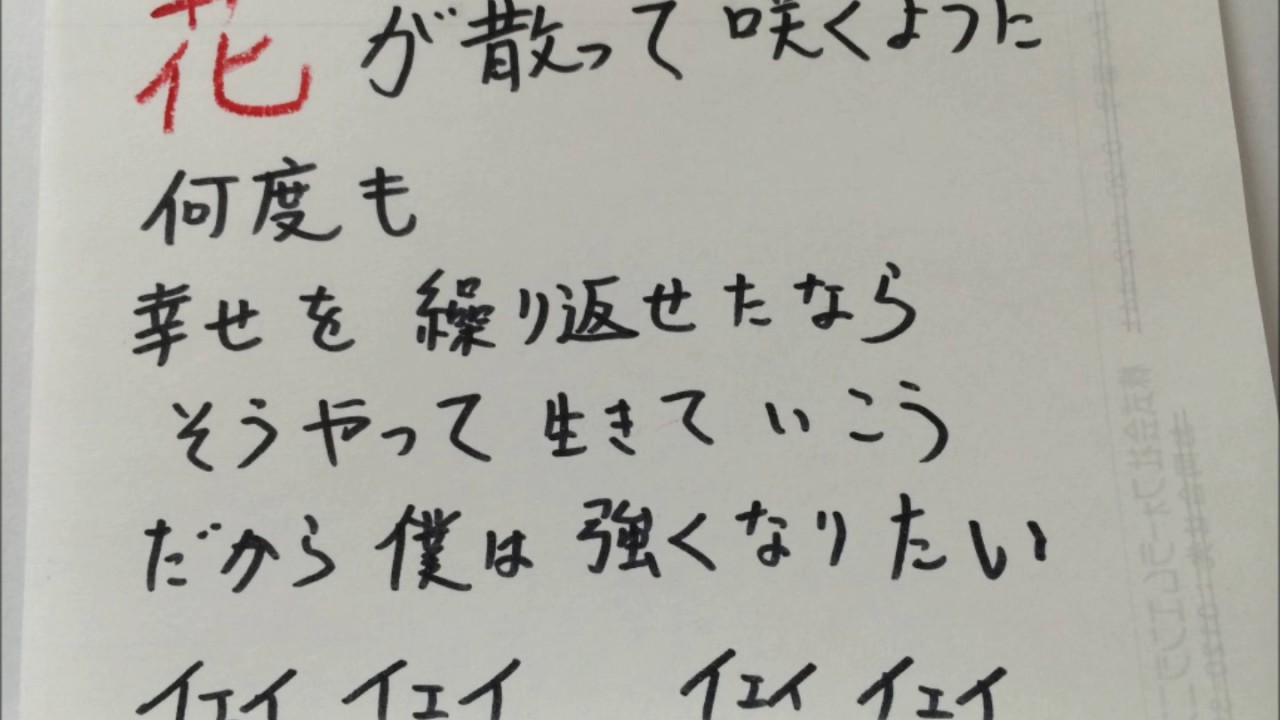 花が散って咲くように
何度も
幸せを繰り返せたなら
そうやって生きていこう
だから僕は強くなりたい
イェイ イェイ イェイ イェイ